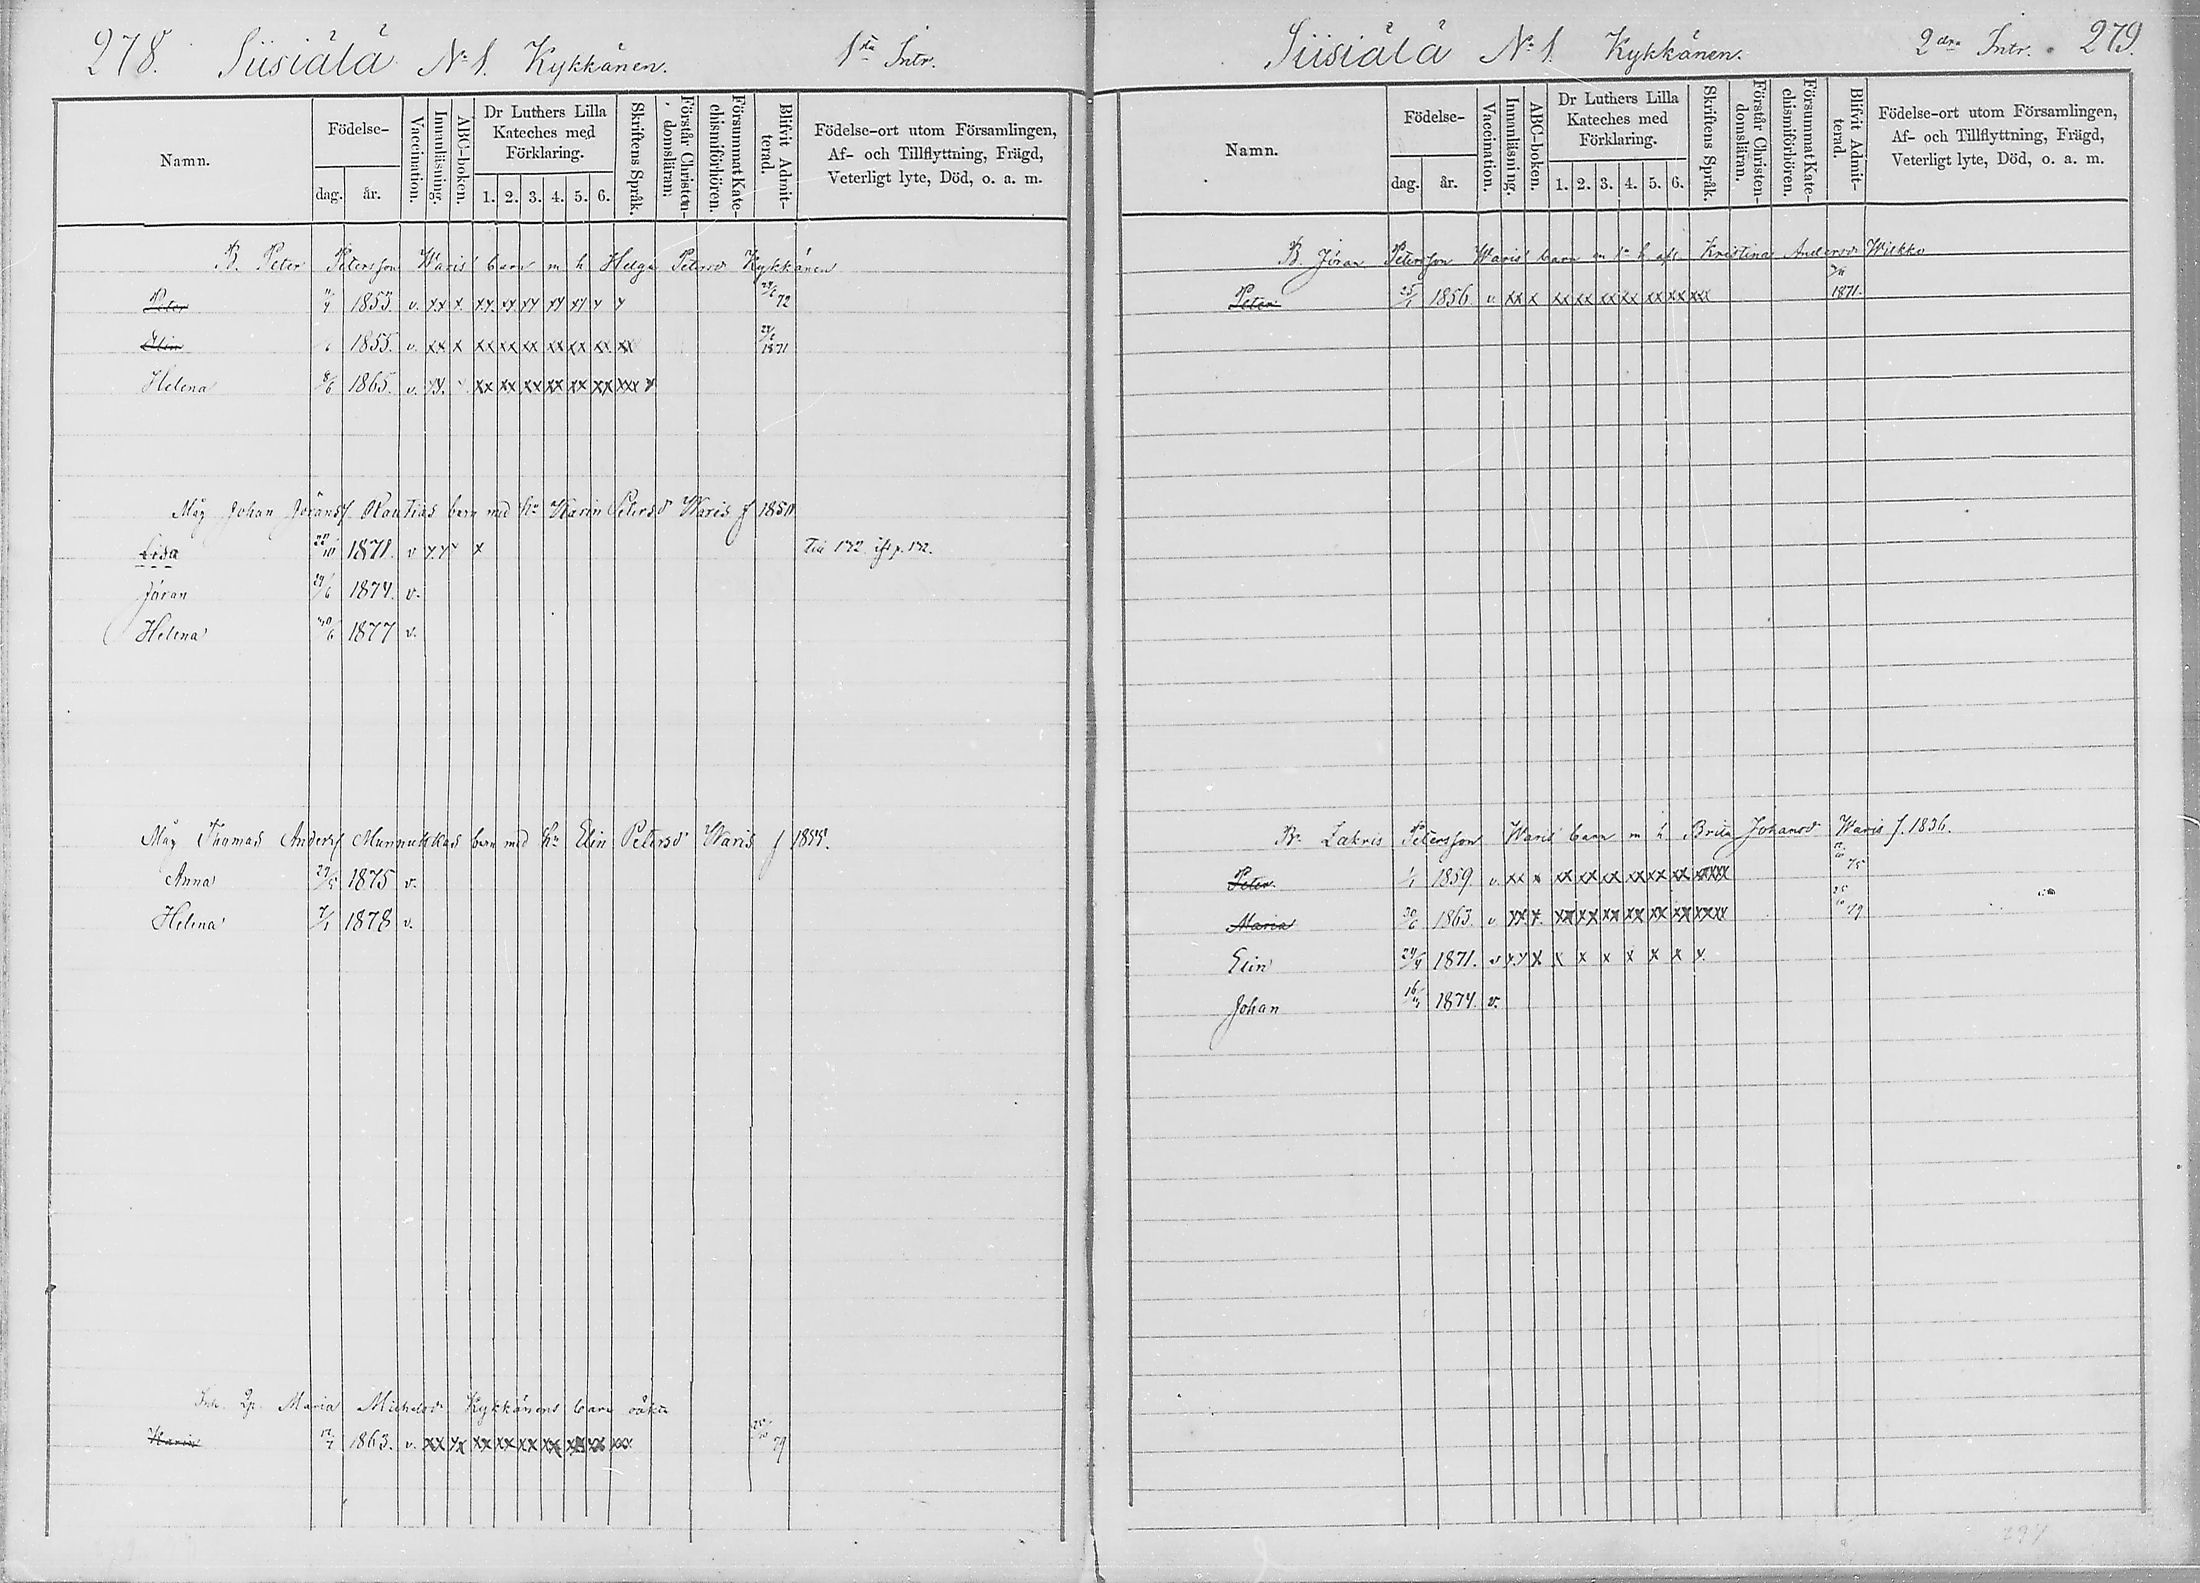 278. Siisiälä No 1. Kykkänen. 1sta Intr.
Namn.
Födelse-
dag. år.
Vaccination.
Innanläsning.
ABC-boken.
Dr Luthers Lilla Kateches med Förklaring.
1. 2. 3. 4. 5. 6.
Skriftens Språk.
Förstår Christendomsläran.
Försummat Katechismiförhören.
Blifvit Admitterad.
Födelse-ort utom Församlingen, Af- och Tillflyttning, Frägd, Veterligt lyte, Död, o. a. m.
B. Peter Petersson Waris' barn m h Helga Petersd Kykkänen
Peter 1855 v. xx x xx xx xx xx xx x x 72
Elin 1855. v. xx x xx xx xx xx xx xx xx 1871
Helena 8/6 1865. v. xx. xx xx xx xx xx xx xxx x
Måg Johan Jöransf Rautias barn med hu Karin Petersd Waris f 1850
Lisa 1871. v x x x Till 172
Jöran 29/6 1874. v.
Helena 30/6 1877 v.
Måg Thomas Andersf Munnukkas barn med hu Elin Petersd Waris f 1855.
Anna 29/5 1875 v.
Helena 7/1 1878 v.
Maria Michelsd Kykkänens barn oäkta
Karin 1863. v. xx xx xx xx xx xx xx xx xxx 79
Siisiälä No 1. Kykkänen. 2dra Intr. 279.
Namn.
Födelse-
dag. år.
Vaccination.
Innanläsning.
ABC-boken.
Dr Luthers Lilla Kateches med Förklaring.
1. 2. 3. 4. 5. 6.
Skriftens Språk.
Förstår Christendomsläran.
Försummat Katechismiförhören.
Blifvit Admitterad.
Födelse-ort utom Församlingen, Af- och Tillflyttning, Frägd, Veterligt lyte, Död, o. a. m.
B. Jöran Petersson Waris' barn m h Kristina Andersd Wilkko
Peter 25/1 1856. v xx x xx xx xx xx xx xx xxx 1871.
Br. Zakris Petersson Waris' barn m h. Brita Johansd Waris f. 1836.
Peter 1/1 1859. v. xx x xx xx xx xx xx xx xxxx 75
Maria 30/6 1863. v xx x. xx xx xx xx xx xx xxxx 79
Elin 1871. v x x x x x x x x x x
Johan 1874. v.